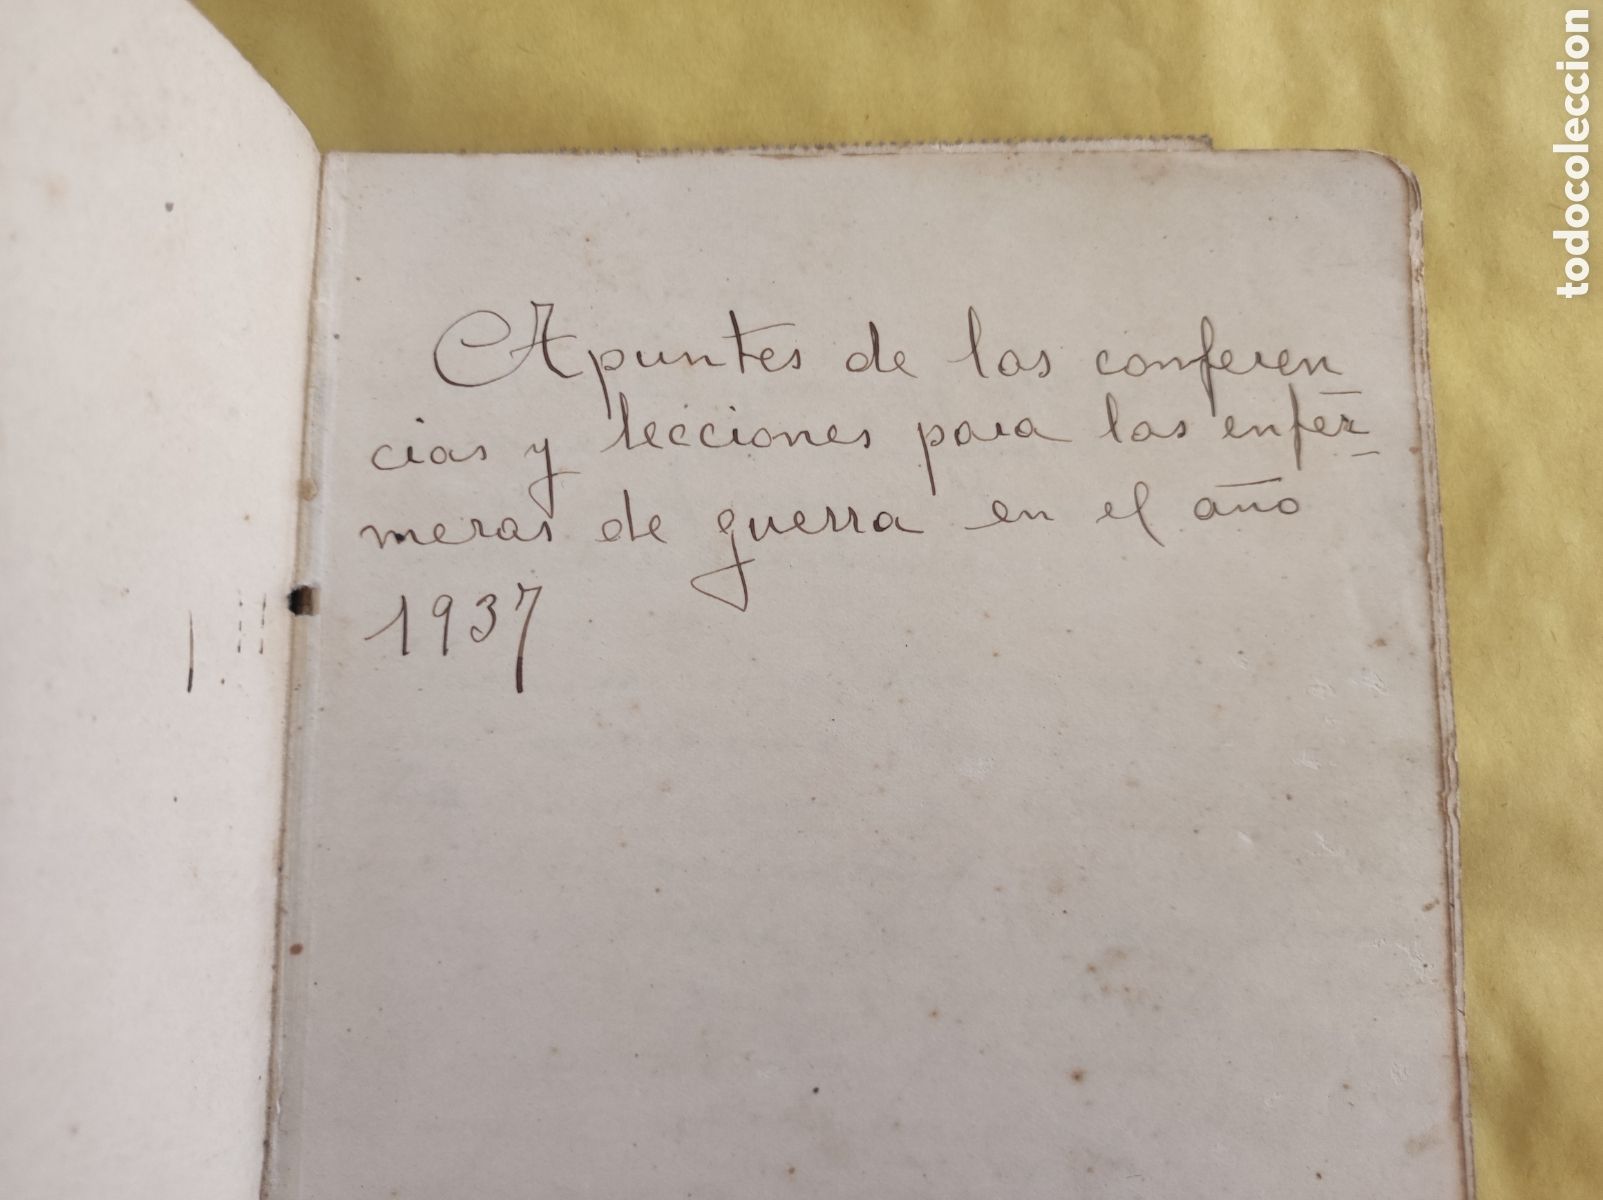 Apuntes de las conferen
cias y lecciones para las enfer-
meras de guerra en el año
1937
todocoleccion